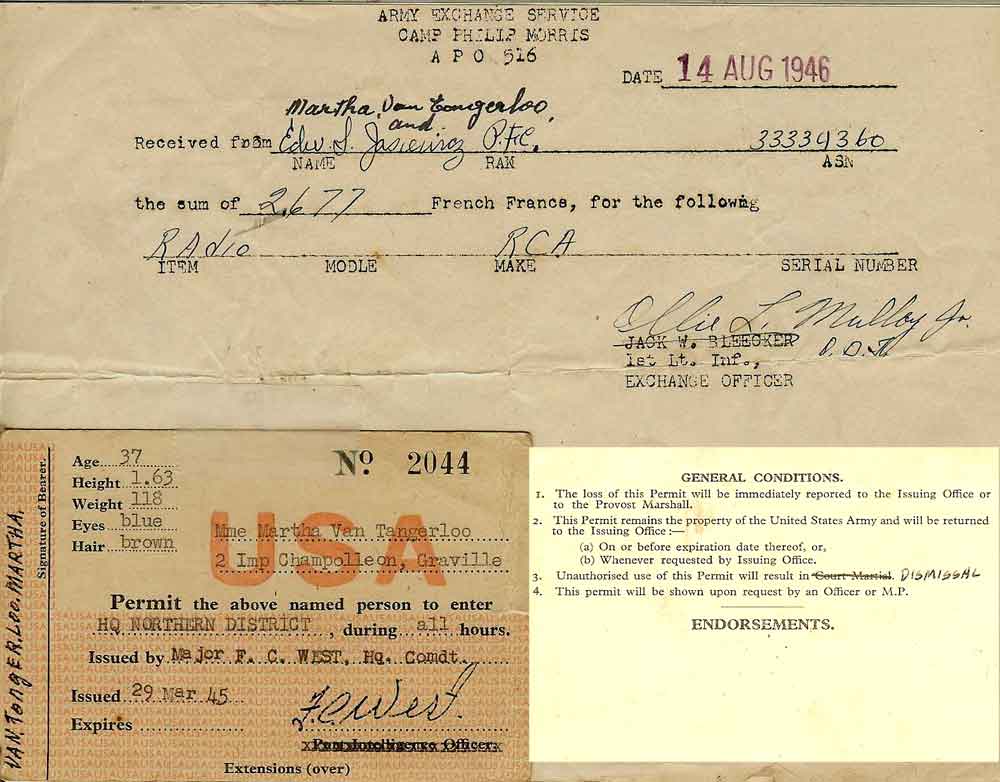 ARMY EXCHANGE SERVICE
CAMP PHILIP MORRIS
A P O 516
DATE 14 AUG 1946
Martha Van Tongerloo,
and
Received from Edw. S. Jasiewicz P.F.C. 33334360
NAME RAN ASN
the sum of 2,677 French Francs, for the following
RAdio RCA
ITEM MODLE MAKE SERIAL NUMBER
Ollie L. Mulloy Jr.
JACK W. BLEECKER
1st Lt. Inf.,
EXCHANGE OFFICER
VAN TONGER.LOO.MARTHA.
Signature of Bearer.
Age 37
Height 1.63
Weight 118
Eyes blue
Hair brown
No 2044
USA
Mme Martha Van Tangerloo
2 Imp Champolleon, Graville
Permit the above named person to enter
HQ NORTHERN DISTRICT, during all hours.
Issued by Major F. C. WEST, Hq. Comdt.
Issued 29 Mar 45
Expires
F.C. West.
Officer.
Extensions (over)
GENERAL CONDITIONS.
1. The loss of this Permit will be immediately reported to the Issuing Office or
to the Provost Marshall.
2. This Permit remains the property of the United States Army and will be returned
to the Issuing Office :—
(a) On or before expiration date thereof, or,
(b) Whenever requested by Issuing Office.
3. Unauthorised use of this Permit will result in Court Martial. DISMISSAL
4. This permit will be shown upon request by an Officer or M.P.
ENDORSEMENTS.